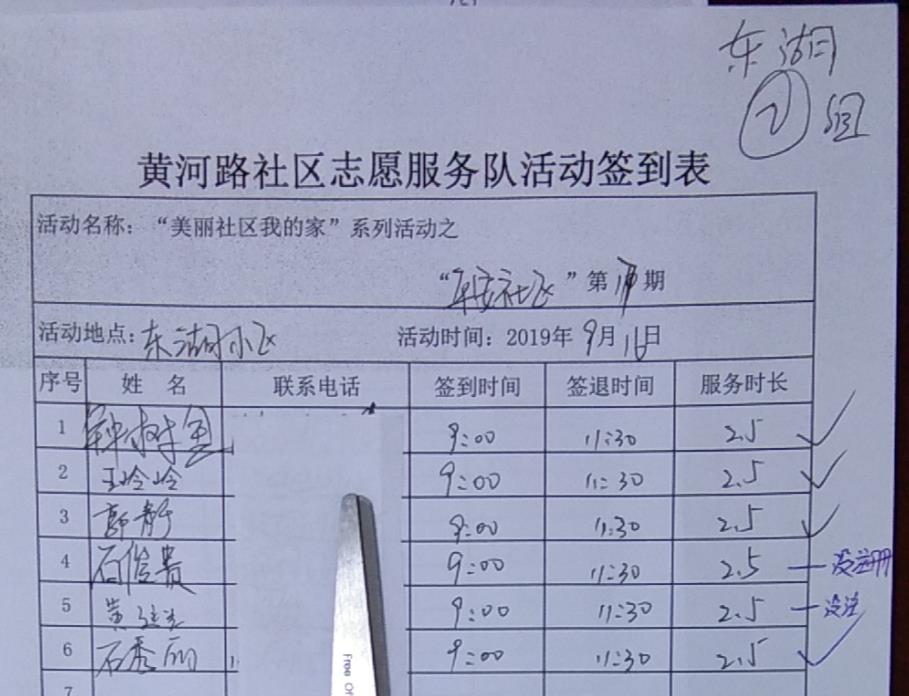 东湖
② 组
黄河路社区志愿服务队活动签到表
活动名称：“美丽社区我的家”系列活动之
“平安社区”第 期
活动地点：东湖小区 活动时间：2019年9月16日
序号 姓 名 联系电话 签到时间 签退时间 服务时长
1 9:00 11:30 2.5 ✓
2 王岭岭 9:00 11:30 2.5 ✓
3 郭静 9:00 11:30 2.5 ✓
4 石俊贵 9:00 11:30 2.5 — 没注册
5 黄 9:00 11:30 2.5 — 没注
6 石秀丽 9:00 11:30 2.5 ✓
7
Free Of